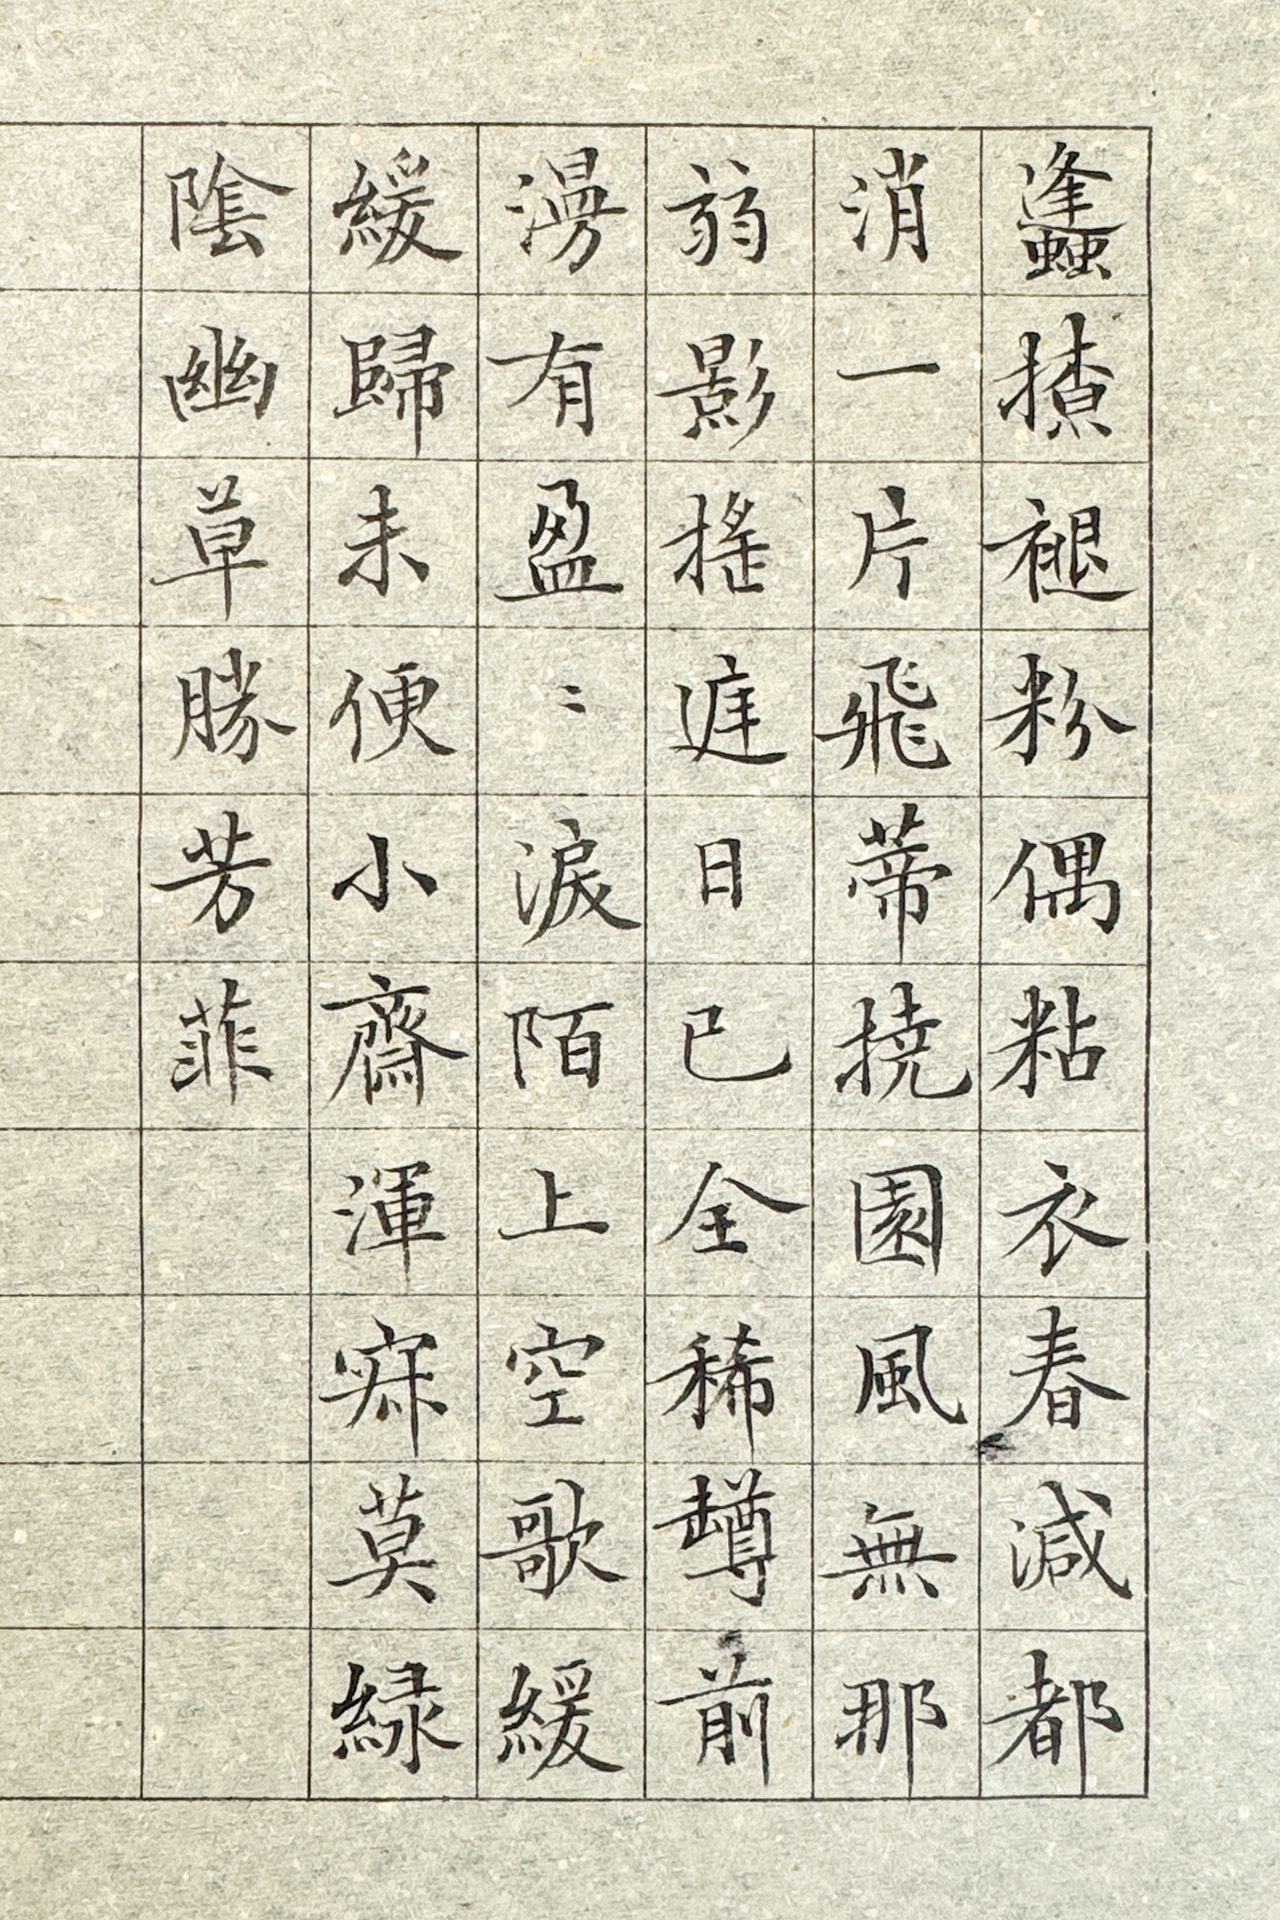 蠭揸褪粉偶粘衣春減都
消一片飛蒂撓園風無那
弱影搖庭日已全稀罇前
漫有盈〻淚陌上空歌緩
緩歸未便小齋渾寂莫緑
陰幽草勝芳菲